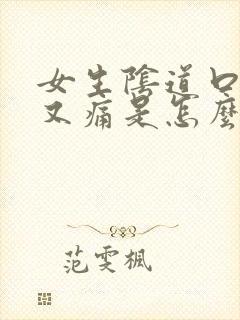 女生陰道口
又痛是怎麼
范雯楓